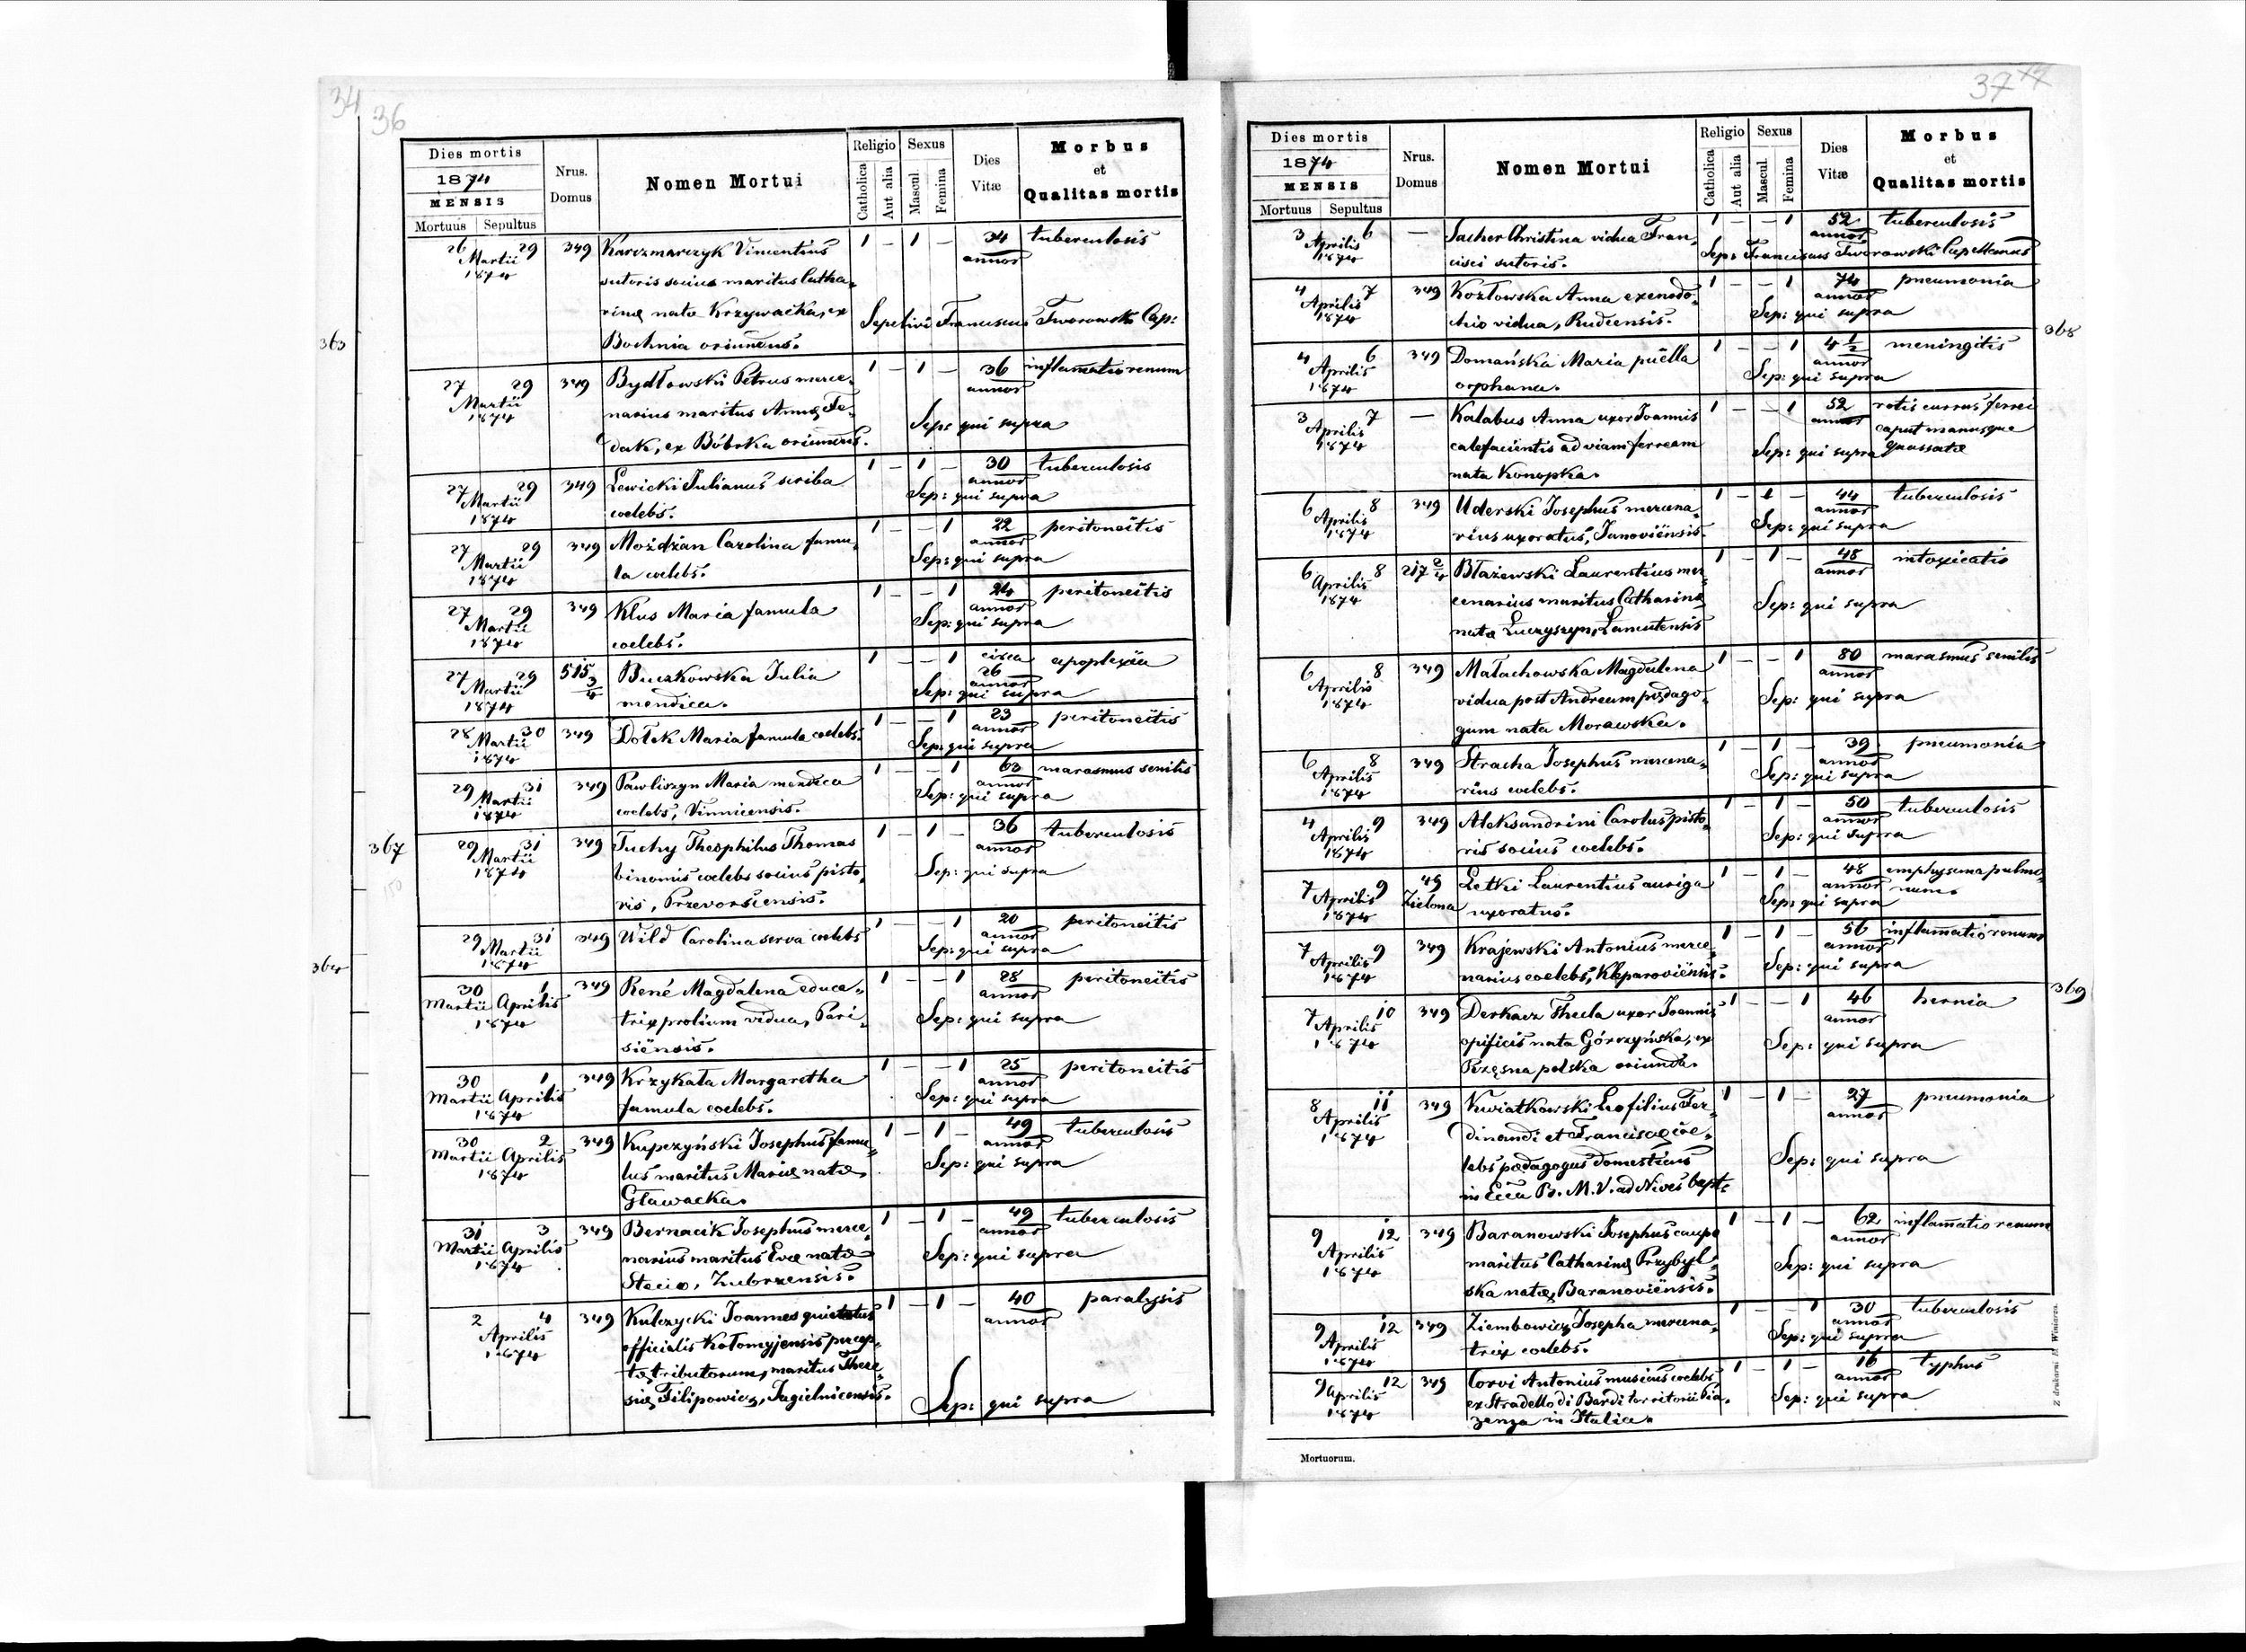 34 36
Dies mortis
1874
MENSIS
Mortuus Sepultus
Nrus. Domus
Nomen Mortui
Religio
Catholica Aut alia
Sexus
Mascul. Femina
Dies Vitæ
Morbus et Qualitas mortis
26 29 349 Karczmarczyk Vincentius 1 – 1 – 34 tuberculosis
Martii sutoris socius maritus Catha, annor
1874 rinæ nata Krzywacka, ex Sepelivi Franciscus Tworowski Cap:
363
Bochnia oriundus.
27 29 349 Bydłowski Petrus merce, 1 – 1 – 36 inflamatio renum
Martii narius maritus Annæ Fe, annor
1874 dak, ex Bóbrka oriundus. Sep: qui supra
27 29 349 Lewicki Julianus scriba 1 – 1 – 30 tuberculosis
Martii coelebs. annor
1874 Sep: qui supra
27 29 349 Moździan Carolina famu, 1 – – 1 22 peritoneitis
Martii la coelebs. annor
1874 Sep: qui supra
27 29 349 Klus Maria famula 1 – – 1 24 peritoneitis
Martii coelebs. annor
1874 Sep: qui supra
27 29 515 3/4 Buczkowska Julia 1 – – 1 circa 26 apoplexia
Martii mendica. annor
1874 Sep: qui supra
28 30 349 Dołek Maria famula coelebs. 1 – – 1 23 peritoneitis
Martii annor
1874 Sep: qui supra
29 31 349 Pawliszyn Maria mendica 1 – – 1 63 marasmus senilis
Martii coelebs, Vinnicensis. annor
1874 Sep: qui supra
367
29 31 349 Tuchy Theophilus Thomas 1 – 1 – 36 tuberculosis
Martii binomis coelebs socius pisto, annor
1874 ris, Przevorscensis. Sep: qui supra
150
29 31 349 Wild Carolina serva coelebs 1 – – 1 20 peritoneitis
Martii annor
1874 Sep: qui supra
364
30 1 349 René Magdalena educa, 1 – – 1 28 peritoneitis
Martii Aprilis trix prolium vidua, Pari, annor
1874 siensis. Sep: qui supra
30 1 349 Krzykała Margaretha 1 – – 1 25 peritoneitis
Martii Aprilis famula coelebs. annor
1874 Sep: qui supra
30 2 349 Kupczyński Josephus famu, 1 – 1 – 49 tuberculosis
Martii Aprilis lus maritus Mariæ natæ annor
1874 Gławacka. Sep: qui supra
31 3 349 Bernacik Josephus merce, 1 – 1 – 49 tuberculosis
Martii Aprilis narius maritus Evæ natæ annor
1874 Stecio, Zubrzensis. Sep: qui supra
2 4 349 Kulczycki Joannes quietatus 1 – 1 – 40 paralysis
Aprilis officialis Kołomyjensis percep, annor
1874 tæ tributorum, maritus There,
siæ Filipowicz, Jagielnicensis. Sep: qui supra
37
Dies mortis
1874
MENSIS
Mortuus Sepultus
Nrus. Domus
Nomen Mortui
Religio
Catholica Aut alia
Sexus
Mascul. Femina
Dies Vitæ
Morbus et Qualitas mortis
3 6 – Sacher Christina vidua Fran, 1 – – 1 52 tuberculosis
Aprilis cisci sutoris. annor
1874 Sep: Franciscus Tworowski Capellanus
4 7 349 Kozłowska Anna exenodo, 1 – – 1 74 pneumonia
Aprilis chio vidua, Rudcensis. annor
1874 Sep: qui supra
368
4 6 349 Domańska Maria puella 1 – – 1 4 1/2 meningitis
Aprilis orphana. annor
1874 Sep: qui supra
3 7 – Kalabus Anna uxor Joannis 1 – – 1 52 rotis currus ferrei
Aprilis calefacientis ad viam ferream annor caput manusque
1874 nata Konopka. Sep: qui supra quassatæ
6 8 349 Uderski Josephus mercena, 1 – 1 – 44 tuberculosis
Aprilis rius uxoratus, Janoviensis. annor
1874 Sep: qui supra
6 8 217 2/4 Błażewski Laurentius mer, 1 – 1 – 48 intoxicatio
Aprilis cenarius maritus Catharinæ annor
1874 natæ Łuczyszyn, Lancutensis Sep: qui supra
6 8 349 Małachowska Magdalena 1 – – 1 80 marasmus senilis
Aprilis vidua post Andream pædago, annor
1874 gum nata Morawska. Sep: qui supra
6 8 349 Stracha Josephus mercena, 1 – 1 – 39 pneumonia
Aprilis rius coelebs. annor
1874 Sep: qui supra
4 9 349 Aleksandrini Carolus pisto, 1 – 1 – 50 tuberculosis
Aprilis ris socius coelebs. annor
1874 Sep: qui supra
7 9 49 Zielona Letki Laurentius auriga 1 – 1 – 48 emphysema pulmo,
Aprilis uxoratus. annor num.
1874 Sep: qui supra
7 9 349 Krajewski Antonius merce, 1 – 1 – 56 inflamatio renum
Aprilis narius coelebs, Kleparoviensis. annor
1874 Sep: qui supra
369
7 10 349 Derkacz Thecla uxor Joannis 1 – – 1 46 hernia
Aprilis opificis nata Górczyńska, ex annor
1874 Rzęsna polska oriunda. Sep: qui supra
8 11 349 Kwiatkowski Leo filius Fer, 1 – 1 – 27 pneumonia
Aprilis dinandi et Franciscæ coe, annor
1874 lebs pædagogus domesticus Sep: qui supra
in Eccla B. M. V. ad Nives bapt:
9 12 349 Baranowski Josephus caupo 1 – 1 – 62 inflamatio renum
Aprilis maritus Catharinæ Przybyl, annor
1874 ska natæ, Baranoviensis. Sep: qui supra
9 12 349 Ziembowicz Josepha mercena, 1 – – 1 30 tuberculosis
Aprilis trix coelebs. annor
1874 Sep: qui supra
9 12 349 Corvi Antonius musicus coelebs 1 – 1 – 16 typhus
Aprilis ex Stradello di Bardi territorii Pia, annor
1874 zenza in Italia. Sep: qui supra
Z drukarni H. Winiarza.
Mortuorum.